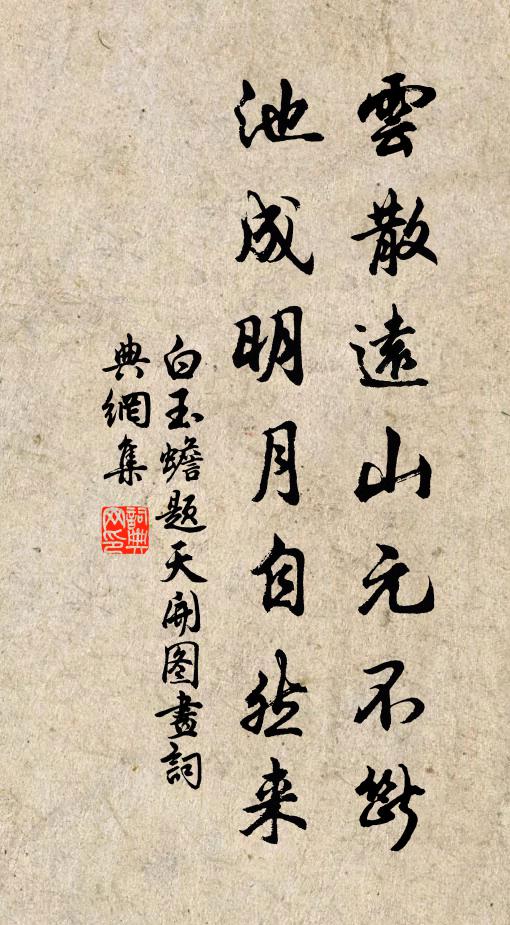 雲散遠山元不斷
池成明月自然来
白玉蟾题天開图畫詞
典網集
詞典网印